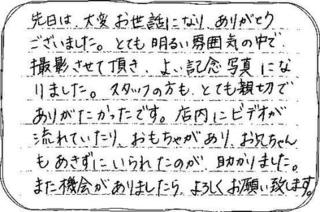 先日は、大変お世話になり、ありがとう
ございました。とても明るい雰囲気の中で、
撮影させて頂き、よい記念写真にな
りました。スタッフの方も、とても親切で
ありがたかったです。店内にビデオが
流れていたり、おもちゃがあり、お兄ちゃん
もあきずにいられたのが、助かりました。
また機会がありましたら、よろしくお願い致します。